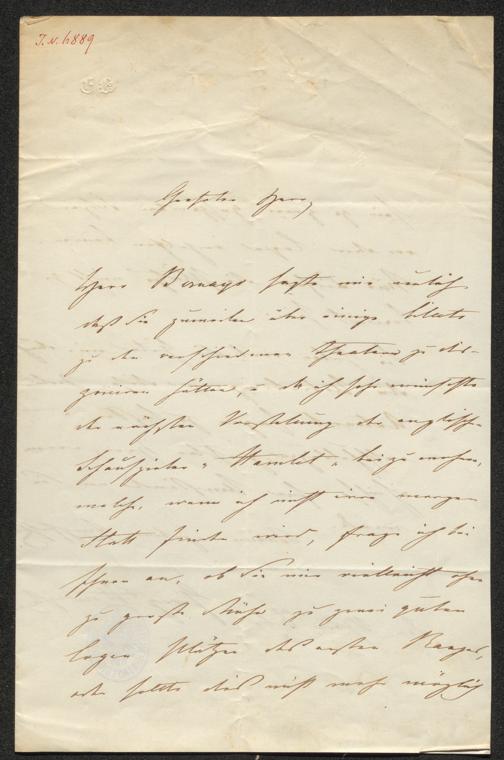 I.N. 6889
EB
Geehrter Herr,
Herr Bernays sagte mir neulich
daß Sie zuweilen über einige Billete
zu den verschiedenen Theatern zu dis-
poniren hätten, u da ich sehr wünschte
der nächsten Vorstellung der englischen
Schauspieler „Hamlet" beizuwohnen,
welche, wenn ich nicht irre morgen
Statt finden wird, frage ich bei
Ihnen an, ob Sie mir vielleicht ohne
zu große Mühe zu zwei guten
Logen Plätzen des ersten Ranges,
oder sollte dies nicht mehr möglich